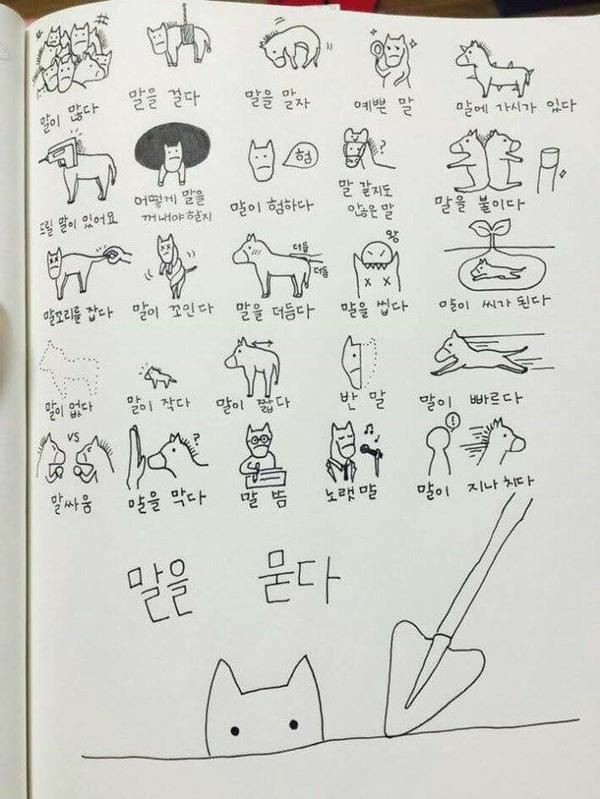 말이 많다
말을 걸다
말을 말자
예쁜 말
말에 가시가 있다
드릴 말이 있어요
어떻게 말을
꺼내야할지
험
말이 험하다
?
말 같지도
않은 말
말을 붙이다
말꼬리를 잡다
말이 꼬인다
더듬
더듬
말을 더듬다
왕
말을 씹다
말이 씨가 된다
말이 없다
말이 작다
말이 짧다
반 말
말이 빠르다
VS
말싸움
?
말을 막다
말 뜸
노랫말
!
말이 지나치다
말을 묻다